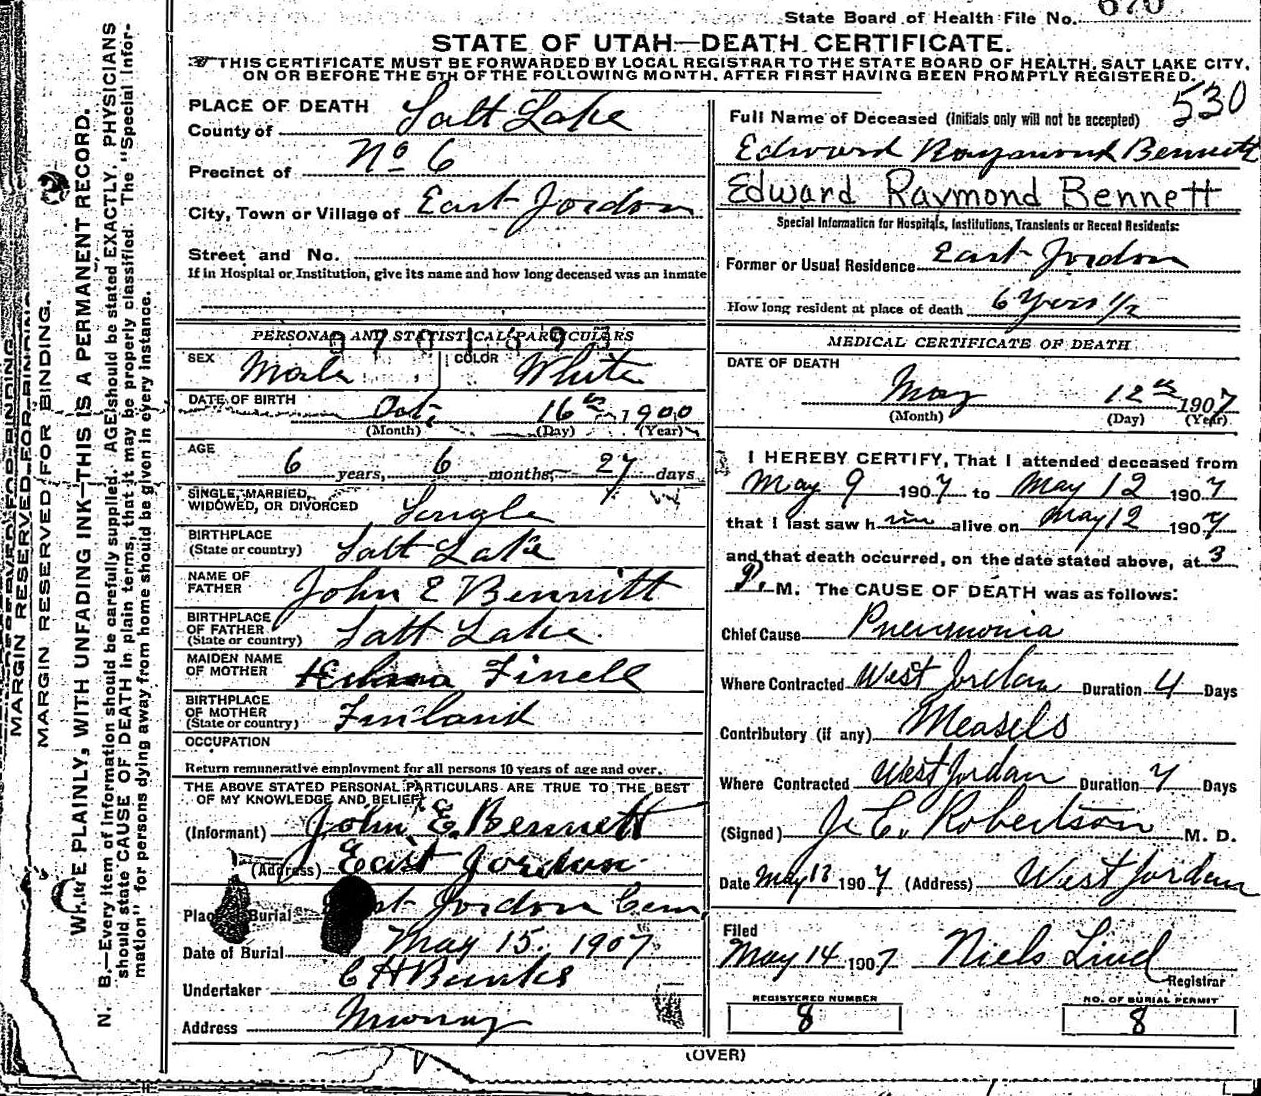 State Board of Health File No. 670
STATE OF UTAH—DEATH CERTIFICATE.
THIS CERTIFICATE MUST BE FORWARDED BY LOCAL REGISTRAR TO THE STATE BOARD OF HEALTH, SALT LAKE CITY,
ON OR BEFORE THE 5TH OF THE FOLLOWING MONTH, AFTER FIRST HAVING BEEN PROMPTLY REGISTERED.
MARGIN RESERVED FOR BINDING
MARGIN RESERVED FOR BINDING.
WRITE PLAINLY, WITH UNFADING INK—THIS IS A PERMANENT RECORD.
N. B.—Every item of information should be carefully supplied. AGE should be stated EXACTLY. PHYSICIANS
should state CAUSE OF DEATH in plain terms, that it may be properly classified. The "Special Infor-
mation" for persons dying away from home should be given in every instance.
PLACE OF DEATH
County of Salt Lake
Precinct of No 6
City, Town or Village of East Jordon
Street and No.
If in Hospital or Institution, give its name and how long deceased was an inmate
PERSONAL AND STATISTICAL PARTICULARS
SEX Male COLOR White
DATE OF BIRTH Oct. 16th 1900
(Month) (Day) (Year)
AGE 6 years, 6 months, 27 days
SINGLE, MARRIED,
WIDOWED, OR DIVORCED Single
BIRTHPLACE
(State or country) Salt Lake
NAME OF
FATHER John E Bennitt
BIRTHPLACE
OF FATHER
(State or country) Salt Lake
MAIDEN NAME
OF MOTHER Finell
BIRTHPLACE
OF MOTHER
(State or country) Finland
OCCUPATION
Return remunerative employment for all persons 10 years of age and over.
THE ABOVE STATED PERSONAL PARTICULARS ARE TRUE TO THE BEST
OF MY KNOWLEDGE AND BELIEF
(Informant) John E. Bennett
(Address) East Jordon
Place Burial Jordon Cem,
Date of Burial May 15. 1907
Undertaker
Address Murray
530
Full Name of Deceased (Initials only will not be accepted)
Edward Raymond Bennett
Edward Raymond Bennett
Special Information for Hospitals, Institutions, Transients or Recent Residents:
Former or Usual Residence East Jordon
How long resident at place of death 6 Years 1/2
MEDICAL CERTIFICATE OF DEATH
DATE OF DEATH
May 12th 1907
(Month) (Day) (Year)
I HEREBY CERTIFY, That I attended deceased from
May 9 1907 to May 12 1907
that I last saw h im alive on May 12 1907
and that death occurred, on the date stated above, at 3
P. M. The CAUSE OF DEATH was as follows:
Chief Cause Pneumonia
Where Contracted West Jordan Duration 4 Days
Contributory (if any) Measels
Where Contracted West Jordan Duration 7 Days
(Signed) Robertson M. D.
Date May 13 1907 (Address) West Jordan
Filed
May 14 1907 Niels Lind
Registrar
REGISTERED NUMBER
8
NO. OF BURIAL PERMIT
8
(OVER)